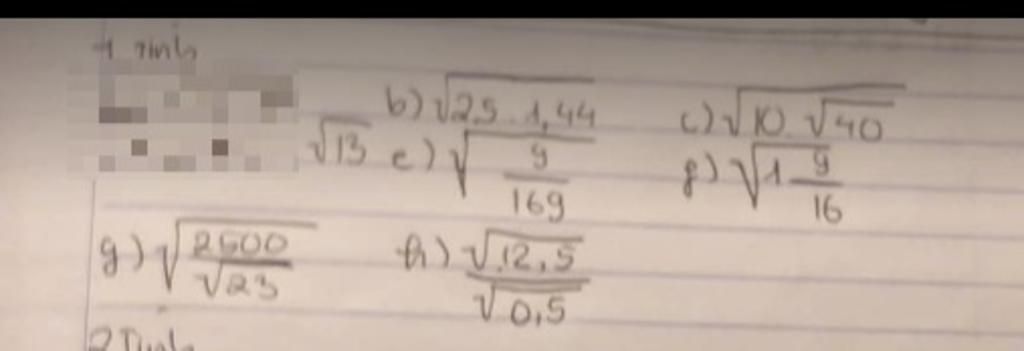 1 Tính
b) √25.1,44 c) √10.√40
√13 e) √9/169 f) √1 9/16
g) √2500/√23 h) √12,5/√0,5
2 Tính